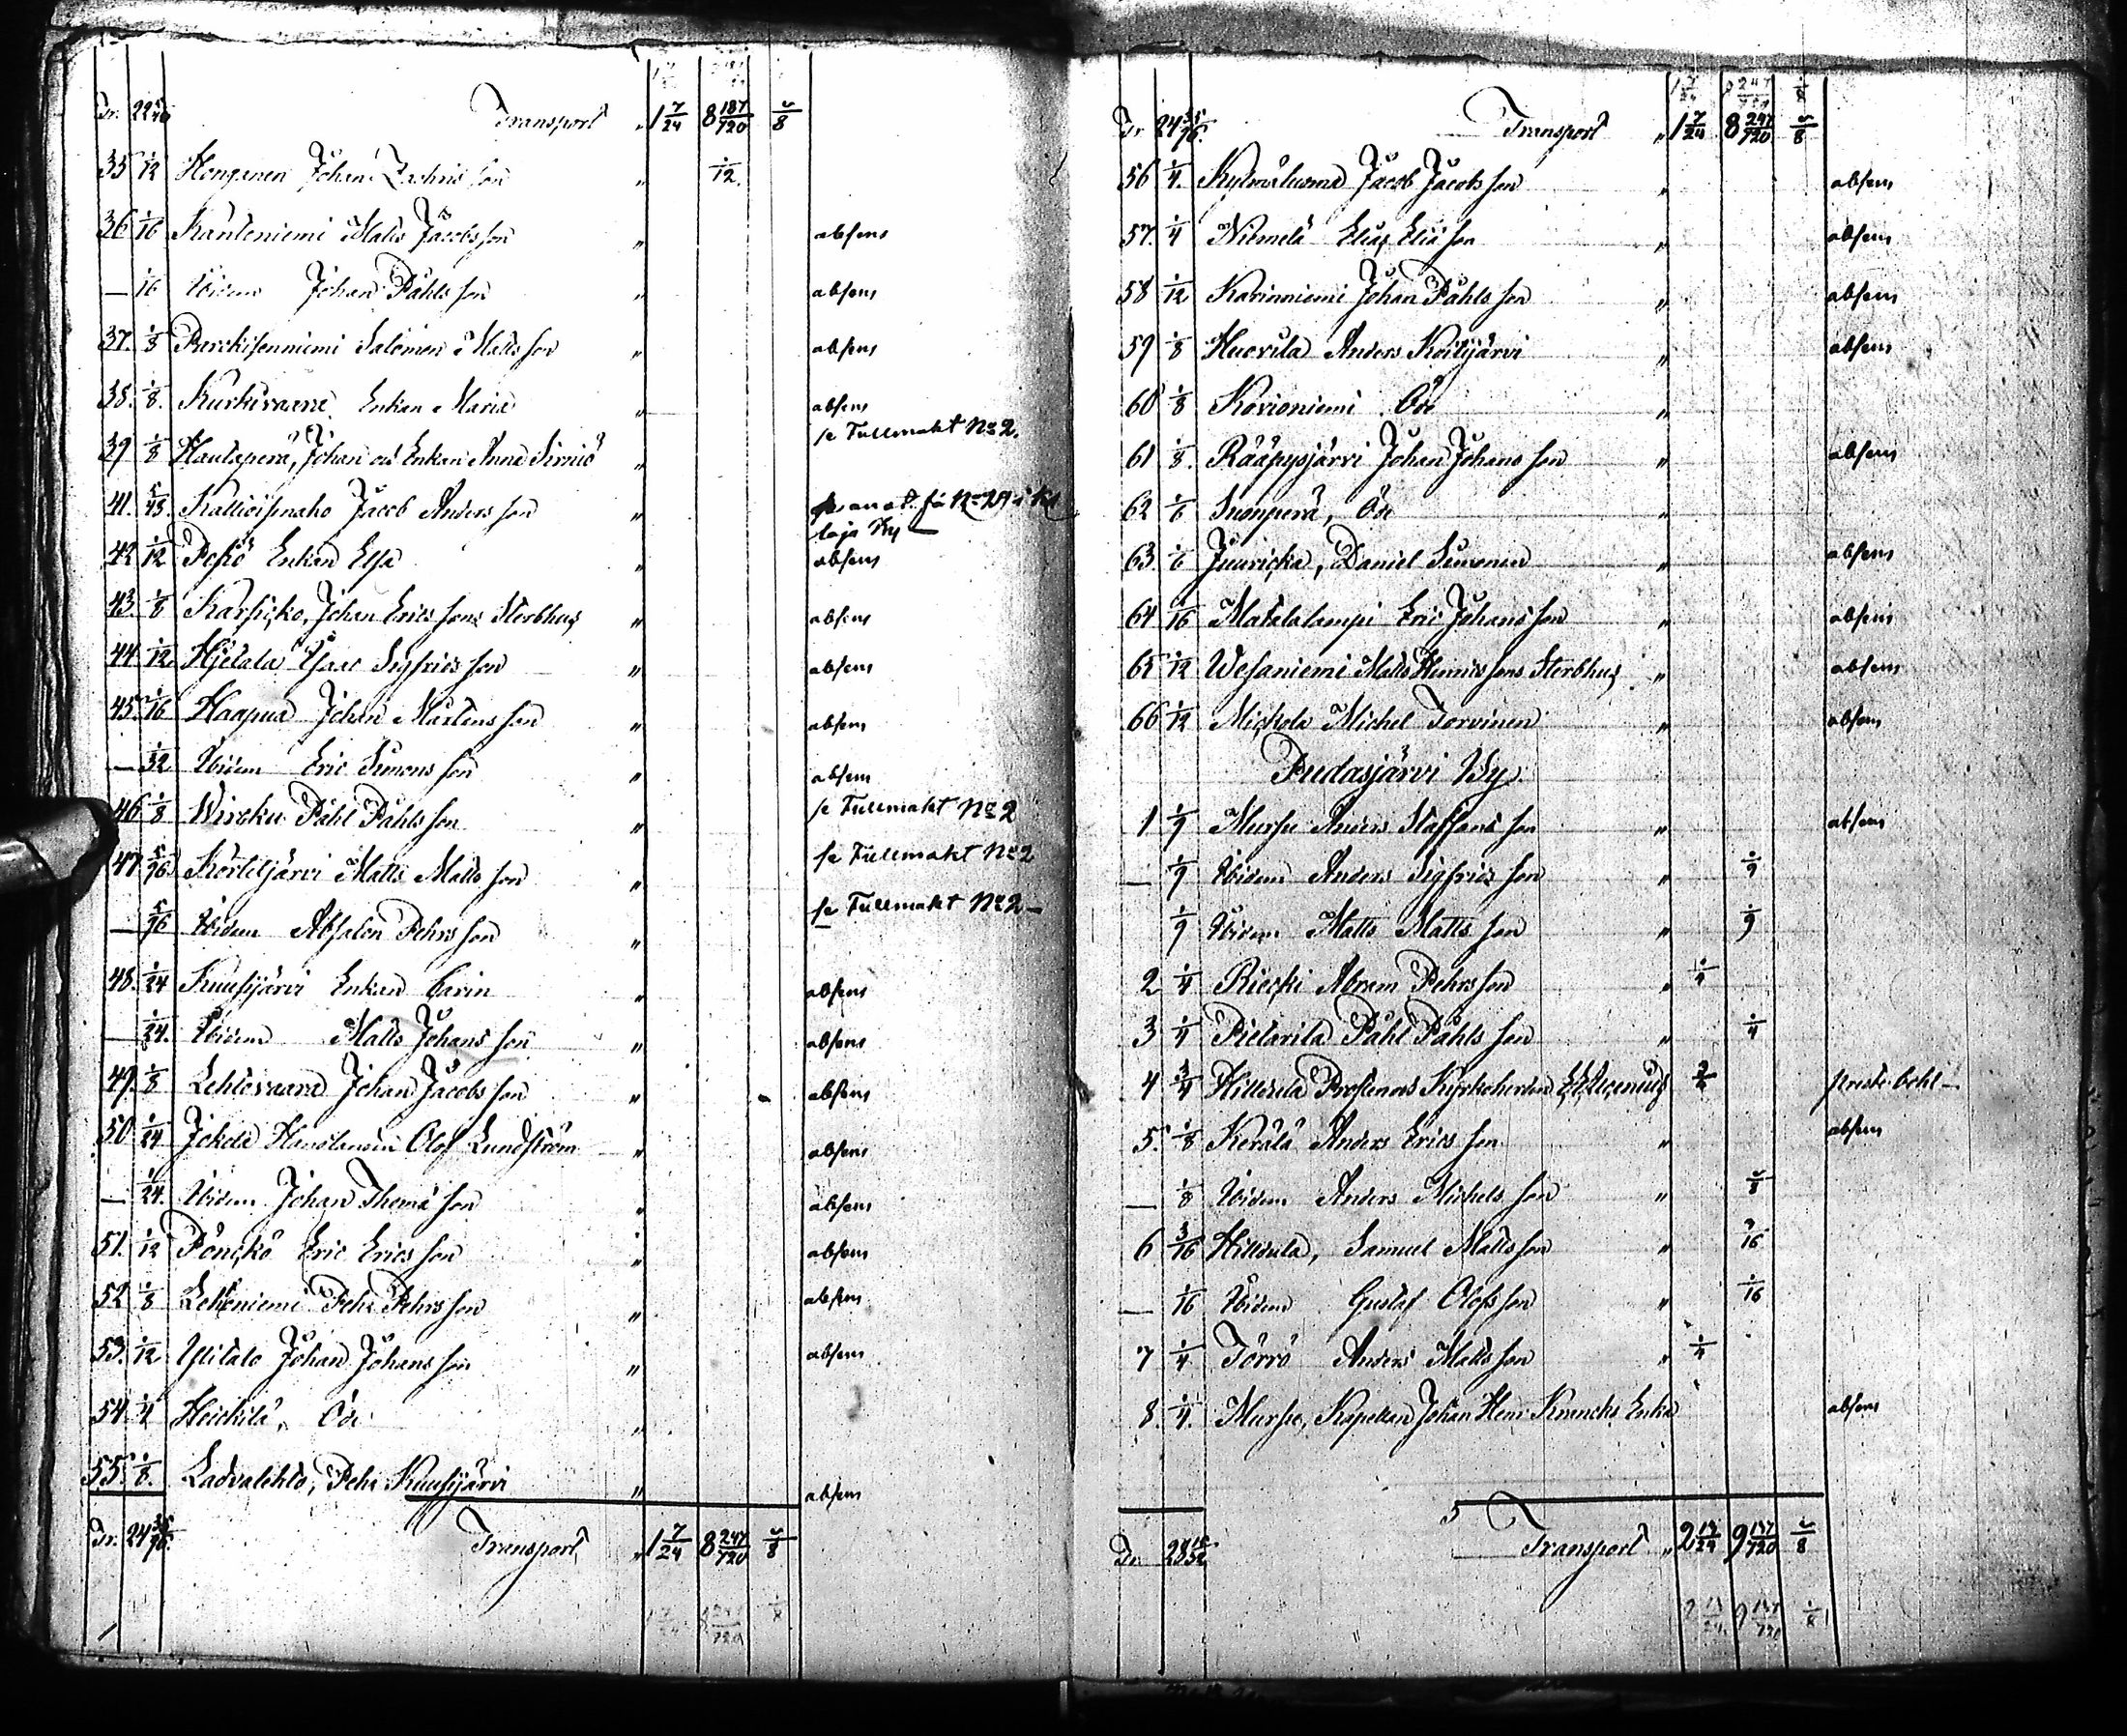 Tr. 22 Transport " 1 7/24 8 187/720 1/8
35 1/12 Honganen Johan Zachris son " 1/12
36 1/16 Känteniemi Matts Jacobs son " absens
— 1/16 Ibidem Johan Påhls son " absens
37. 1/8 Parckisenniemi Salomon Matts son " absens
38. 1/8. Kurkivaara Enkan Maria " absens
39 1/8 Hautaperä, Johan och Enkan Anna Sirniö " se Fullmakt No 2.
41. Kallioisenaho Jacob Anders son "
42 1/12 Pesiö Enkan Elsa " absens
43. 1/8 Karsicko, Johan Erics sons Sterbhus " absens
44. 1/12. Hjetala Isaac Sigfrids son " absens
45. 1/16 Haapua Johan Mårtens son " absens
— 1/32 Ibidem Eric Simons son " absens
46 1/8 Wircku Påhl Påhls son " se Fullmakt No 2
47 5/96 Körtetjärvi Matts Matts son " se Fullmakt No 2
— 5/96 Ibidem Absalon Pehrs son " se Fullmakt No 2 —
48. 1/24 Kuusijärvi Enkan Carin " absens
— 1/24. Ibidem Matts Johans son " absens
49. 1/8 Lehtovaara Johan Jacobs son " absens
50 1/24 Jokela Handlanden Olof Lundström " absens
— 1/24. Ibidem Johan Thoma son " absens
51. 1/12 Pönickö Eric Erics son " absens
52 1/8 Lehtoniemi Pehr Pehrs son " absens
53. 1/12 Ylitalo Johan Johans son " absens
54. 1/4 Heickilä, Öde "
55. 1/8. Ladvalehto, Pehr Kuusijärvi " absens
Tr. 24 35/96. Transport " 1 7/24 8 247/720 1/8
Tr 24 35/96. Transport " 1 7/24 8 247/720 1/8
56 1/4. Kylmäluoma Jacob Jacobs son " absens
57. 1/4 Niemelä Elias Elia son " absens
58 1/12 Karinniemi Johan Påhls son " absens
59 1/8 Huovila Anders Koitijärvi " absens
60 1/8 Korioniemi Öde "
61 1/8. Rääpysjärvi Johan Johans son " absens
62 1/6 Suonperä, Öde "
63 1/6 Juuricka, Daniel Simonen " absens
64 1/16 Matalalampi Eric Johans son " absens
65 1/12 Wesaniemi Matts Henrics sons Sterbhus " absens
66 1/12 Mickola Michel Torvinen " absens
Pudasjärvi By.
1 1/9 Mursu Anders Staffans son " absens
— 1/9 Ibidem Anders Sigfrids son " 1/9
1/9 Ibidem Matts Matts son " 1/9
2 1/4 Riecki Abram Pehrs son " 1/4
3 1/4 Pietarila Påhl Påhls son " 1/4
4 3/4 Hillerila Prostens Kyrkoherden 3/4
5. 1/8 Kerälä Anders Erics son " absens
— 1/8 Ibidem Anders Michels son " 1/8
6 3/16 Hilturila, Samuel Matts son " 3/16
— 1/16 Ibidem Gustaf Olofs son " 1/16
7 1/4. Törrö Anders Matts son " 1/4
8. 1/4. Mursu, Kapellan Johan Henr Krancks Enka absens
Tr. 28 Transport " 2 13/24 9 137/720 1/8
2 13/24. 9 137/720 1/8